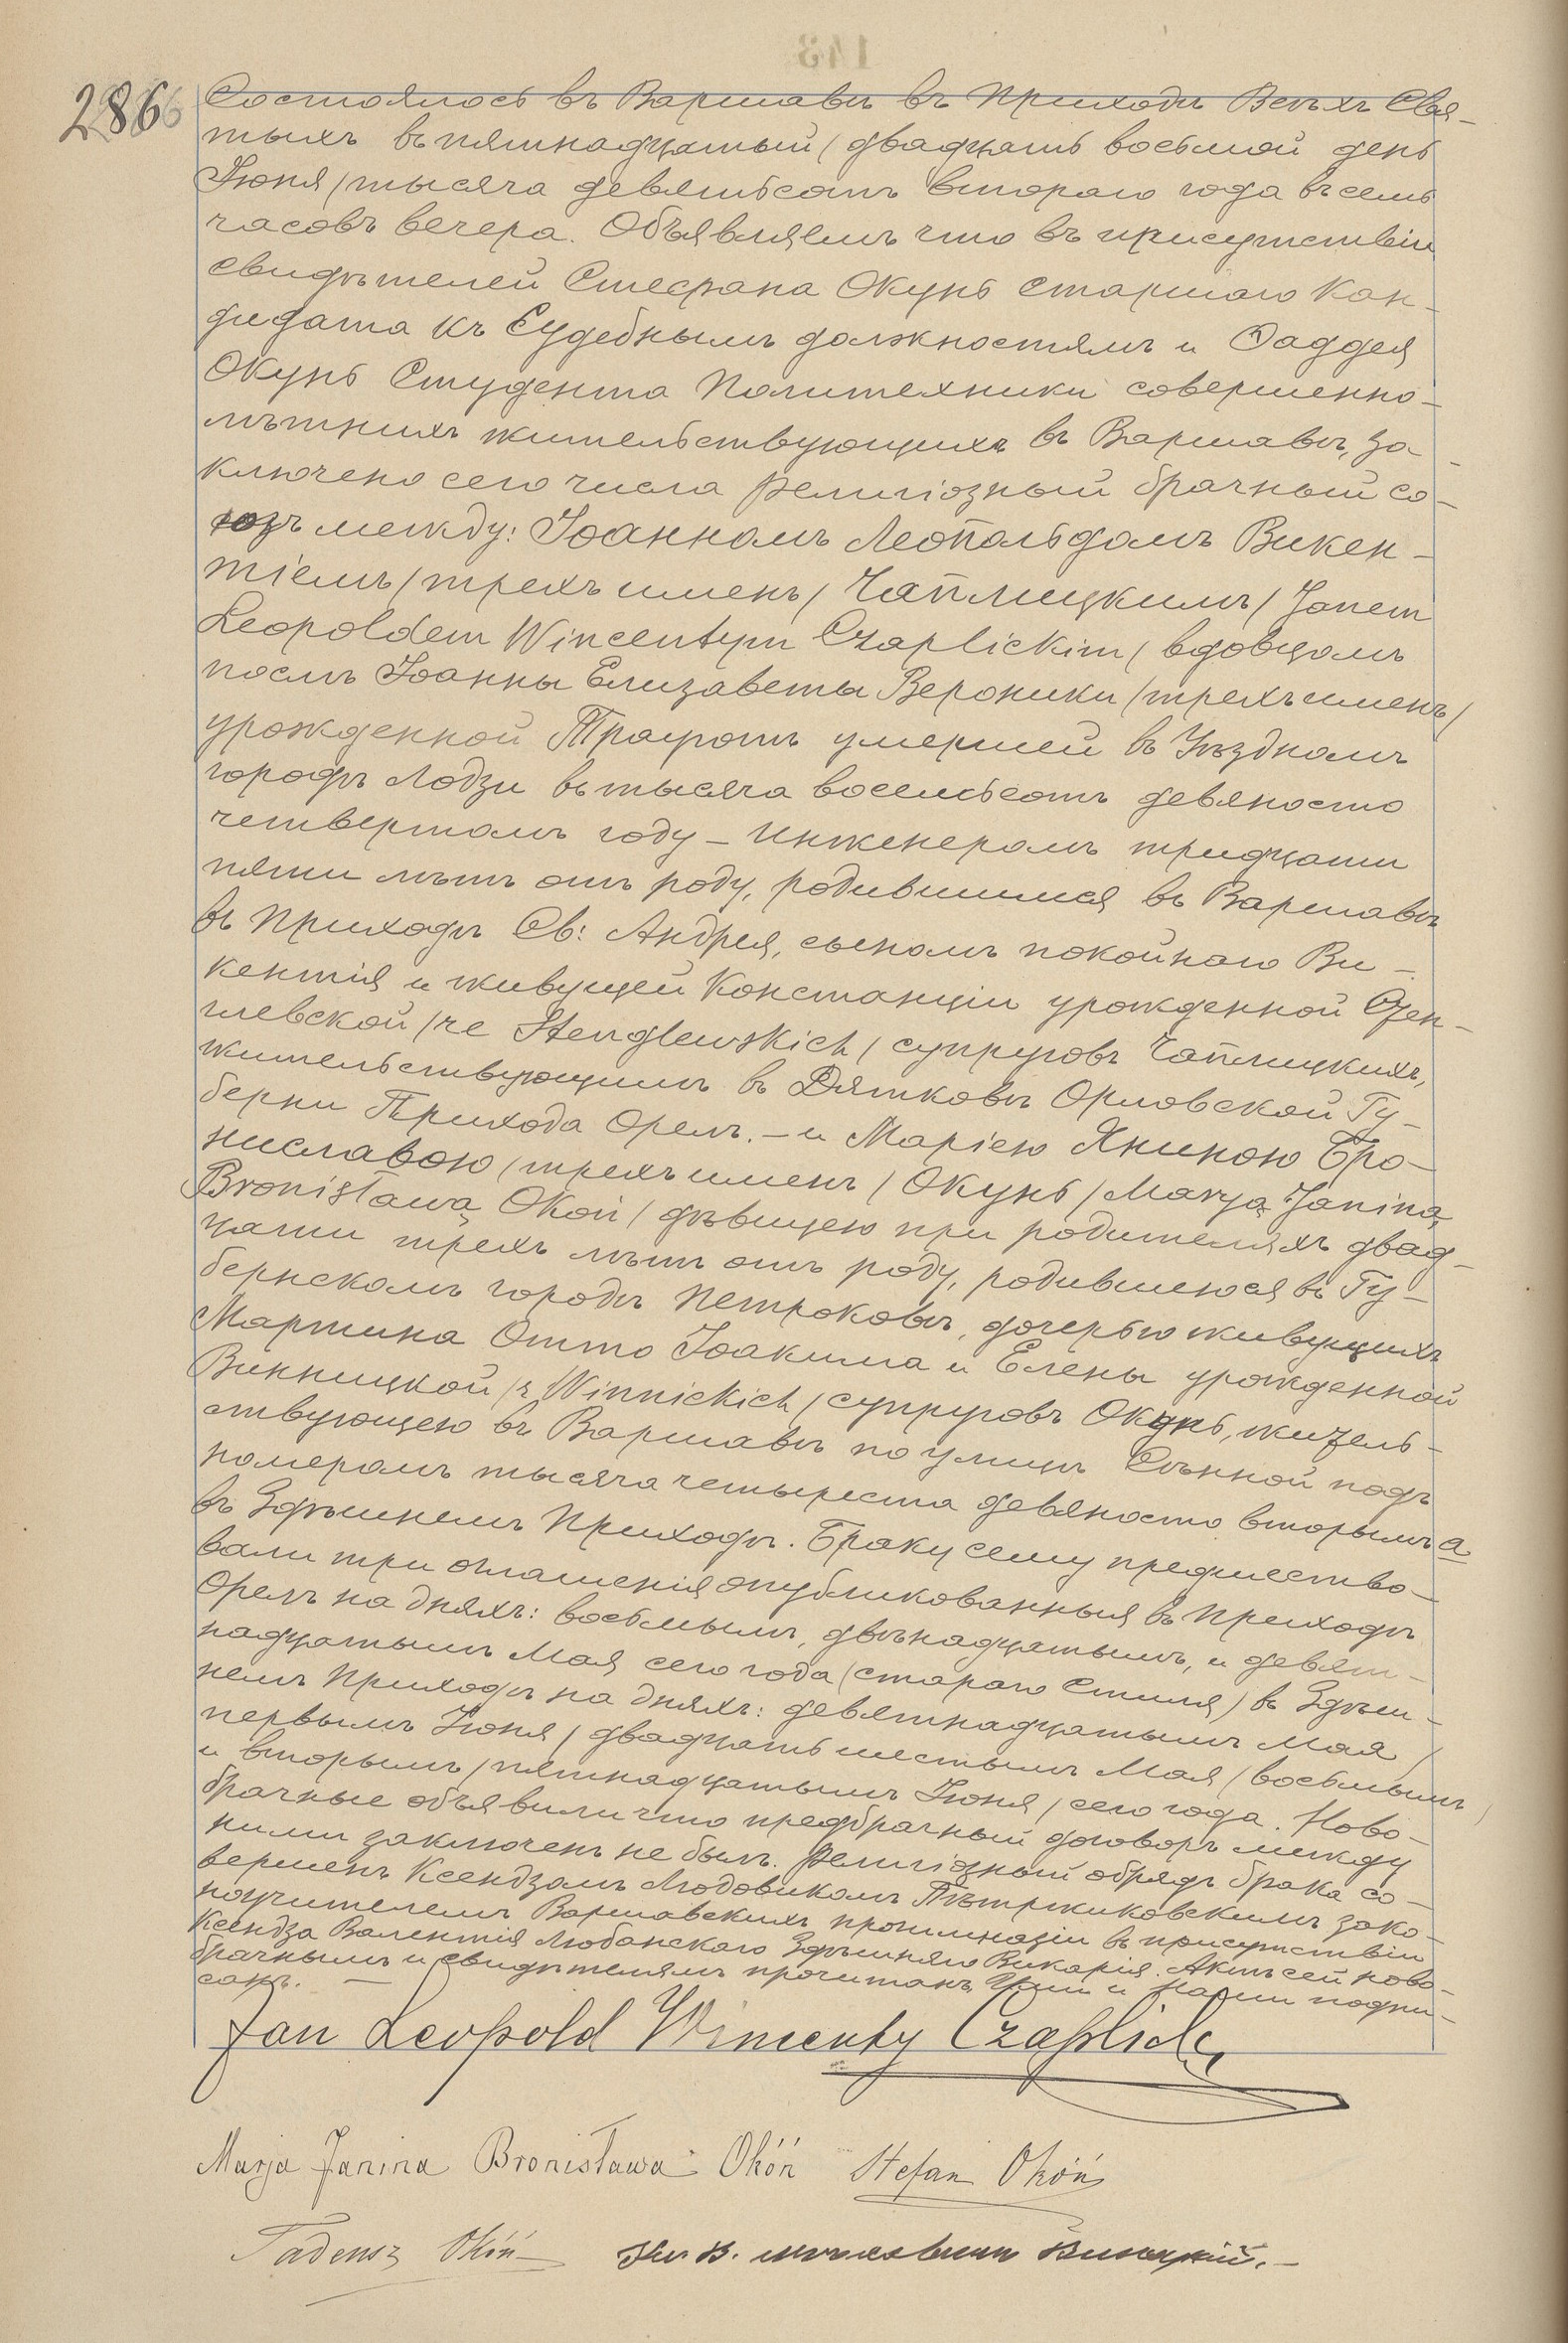 143
286
Состоялось въ Варшавѣ въ Приходѣ Всѣхъ Свя-
тыхъ въ пятнадцатый / двадцать восьмой день
Іюня / тысяча девятьсотъ второго года въ семь
часовъ вечера. Объявляемъ что въ присутствіи
свидѣтелей Стефана Окунь старшаго кан-
дидата къ Судебнымъ должностямъ и Фаддея
Окунь Студента Политехники совершенно-
лѣтнихъ жительствующихъ въ Варшавѣ, за-
ключено сего числа религіозный брачный со-
юзъ между: Іоанномъ Леопольдомъ Викен-
тіемъ / трехъ именъ / Чаплицкимъ / Janem
Leopoldem Wincentym Czaplickim / вдовцомъ
послѣ Іоанны Елизаветы Вероники / трехъ именъ /
урожденной Траутъ умершей въ Уѣздномъ
городѣ Лодзи въ тысяча восемьсотъ девяносто
четвертомъ году – инженеромъ тридцати
пяти лѣтъ отъ роду, родившимся въ Варшавѣ
въ Приходѣ Св: Андрея, сыномъ покойнаго Ви-
кентія и живущей Констанціи урожденной
глевской / Stenglewskich / супруговъ Чаплицкихъ,
жительствующимъ въ Дятковѣ Орловской Гу-
берни Прихода Орелъ. – и Маріею Яниною Бро-
ниславою / трехъ именъ / Окунь / Maryą Janiną
Bronisławą Okoń / дѣвицею при родителяхъ двад-
цати трехъ лѣтъ отъ роду, родившеюся въ Гу-
бернскомъ городѣ Петроковѣ, дочерью живущихъ
Мартина Отто Іоакима и Елены урожденной
Винницкой / z Winnickich / супруговъ Окунь, житель-
ствующею въ Варшавѣ по улицѣ Сѣнной подъ
номеромъ тысяча четыреста девяносто вторымъ а
въ Здѣшнемъ Приходѣ. Браку сему предшество-
вали три оглашенія опубликованныя въ Приходѣ
Орелъ на дняхъ: восьмымъ, двѣнадцатымъ, и девят-
надцатымъ Мая сего года (стараго Стиля) въ Здѣш-
немъ Приходѣ на дняхъ: девятнадцатымъ Мая /
первымъ Іюня / двадцать шестымъ Мая / восьмымъ /
и вторымъ / пятнадцатымъ Іюня / сего года. Ново-
брачные объявили что предбрачный договоръ между
ними заключенъ не былъ. Религіозный обрядъ брака со-
вершенъ Ксендзомъ Людовикомъ законо-
поучителемъ Варшавскихъ прогимназіи въ присутствіи
Ксендза Валентія Любанскаго Здѣшняго Викарія. Актъ сей ново-
брачнымъ и свидѣтелямъ прочитанъ, Ими и Нами подпи-
санъ. –
Jan Leopold Wincenty Czaplicki
Marja Janina Bronisława Okóń Stefan Okóń
Tadeusz Okóń